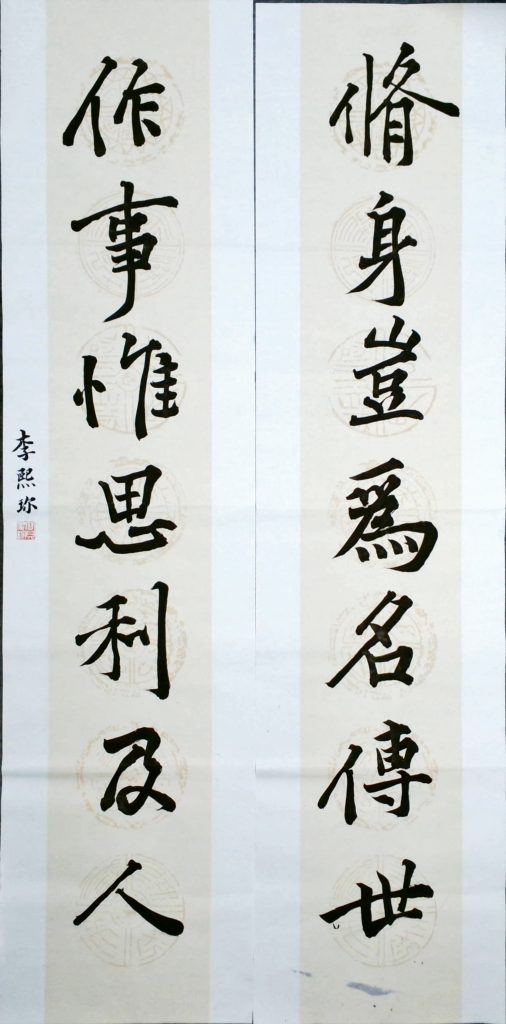 脩身豈爲名傳世
作事惟思利及人
李熙珎